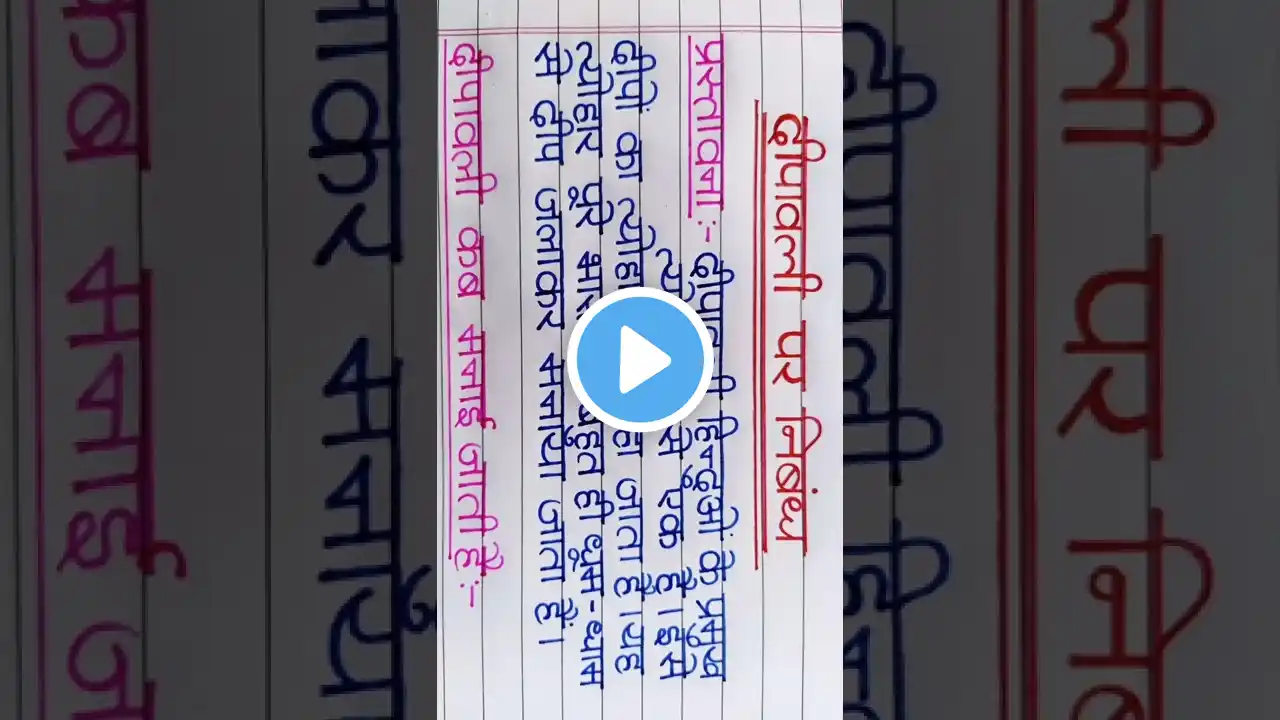 दीपावली पर निबंध
प्रस्तावना :- दीपावली हिन्दुओं के प्रमुख
से एक है। इसे
दीपों का जाता है। यह
त्योहार पूरे बहुत ही धूम-धाम
से दीप जलाकर मनाया जाता है।
दीपावली कब मनाई जाती है :-